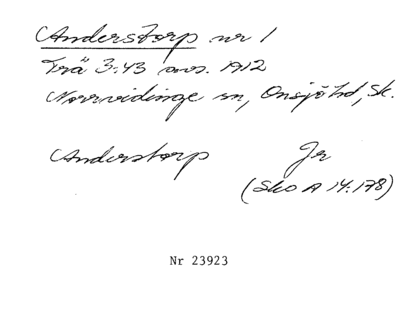 Anderstorp nr 1
Trä 3:43 avs. 1912
Norrvidinge sn, Onsjö hd, Sk.
Anderstorp Jr
(Sko A 14:178)
Nr 23923